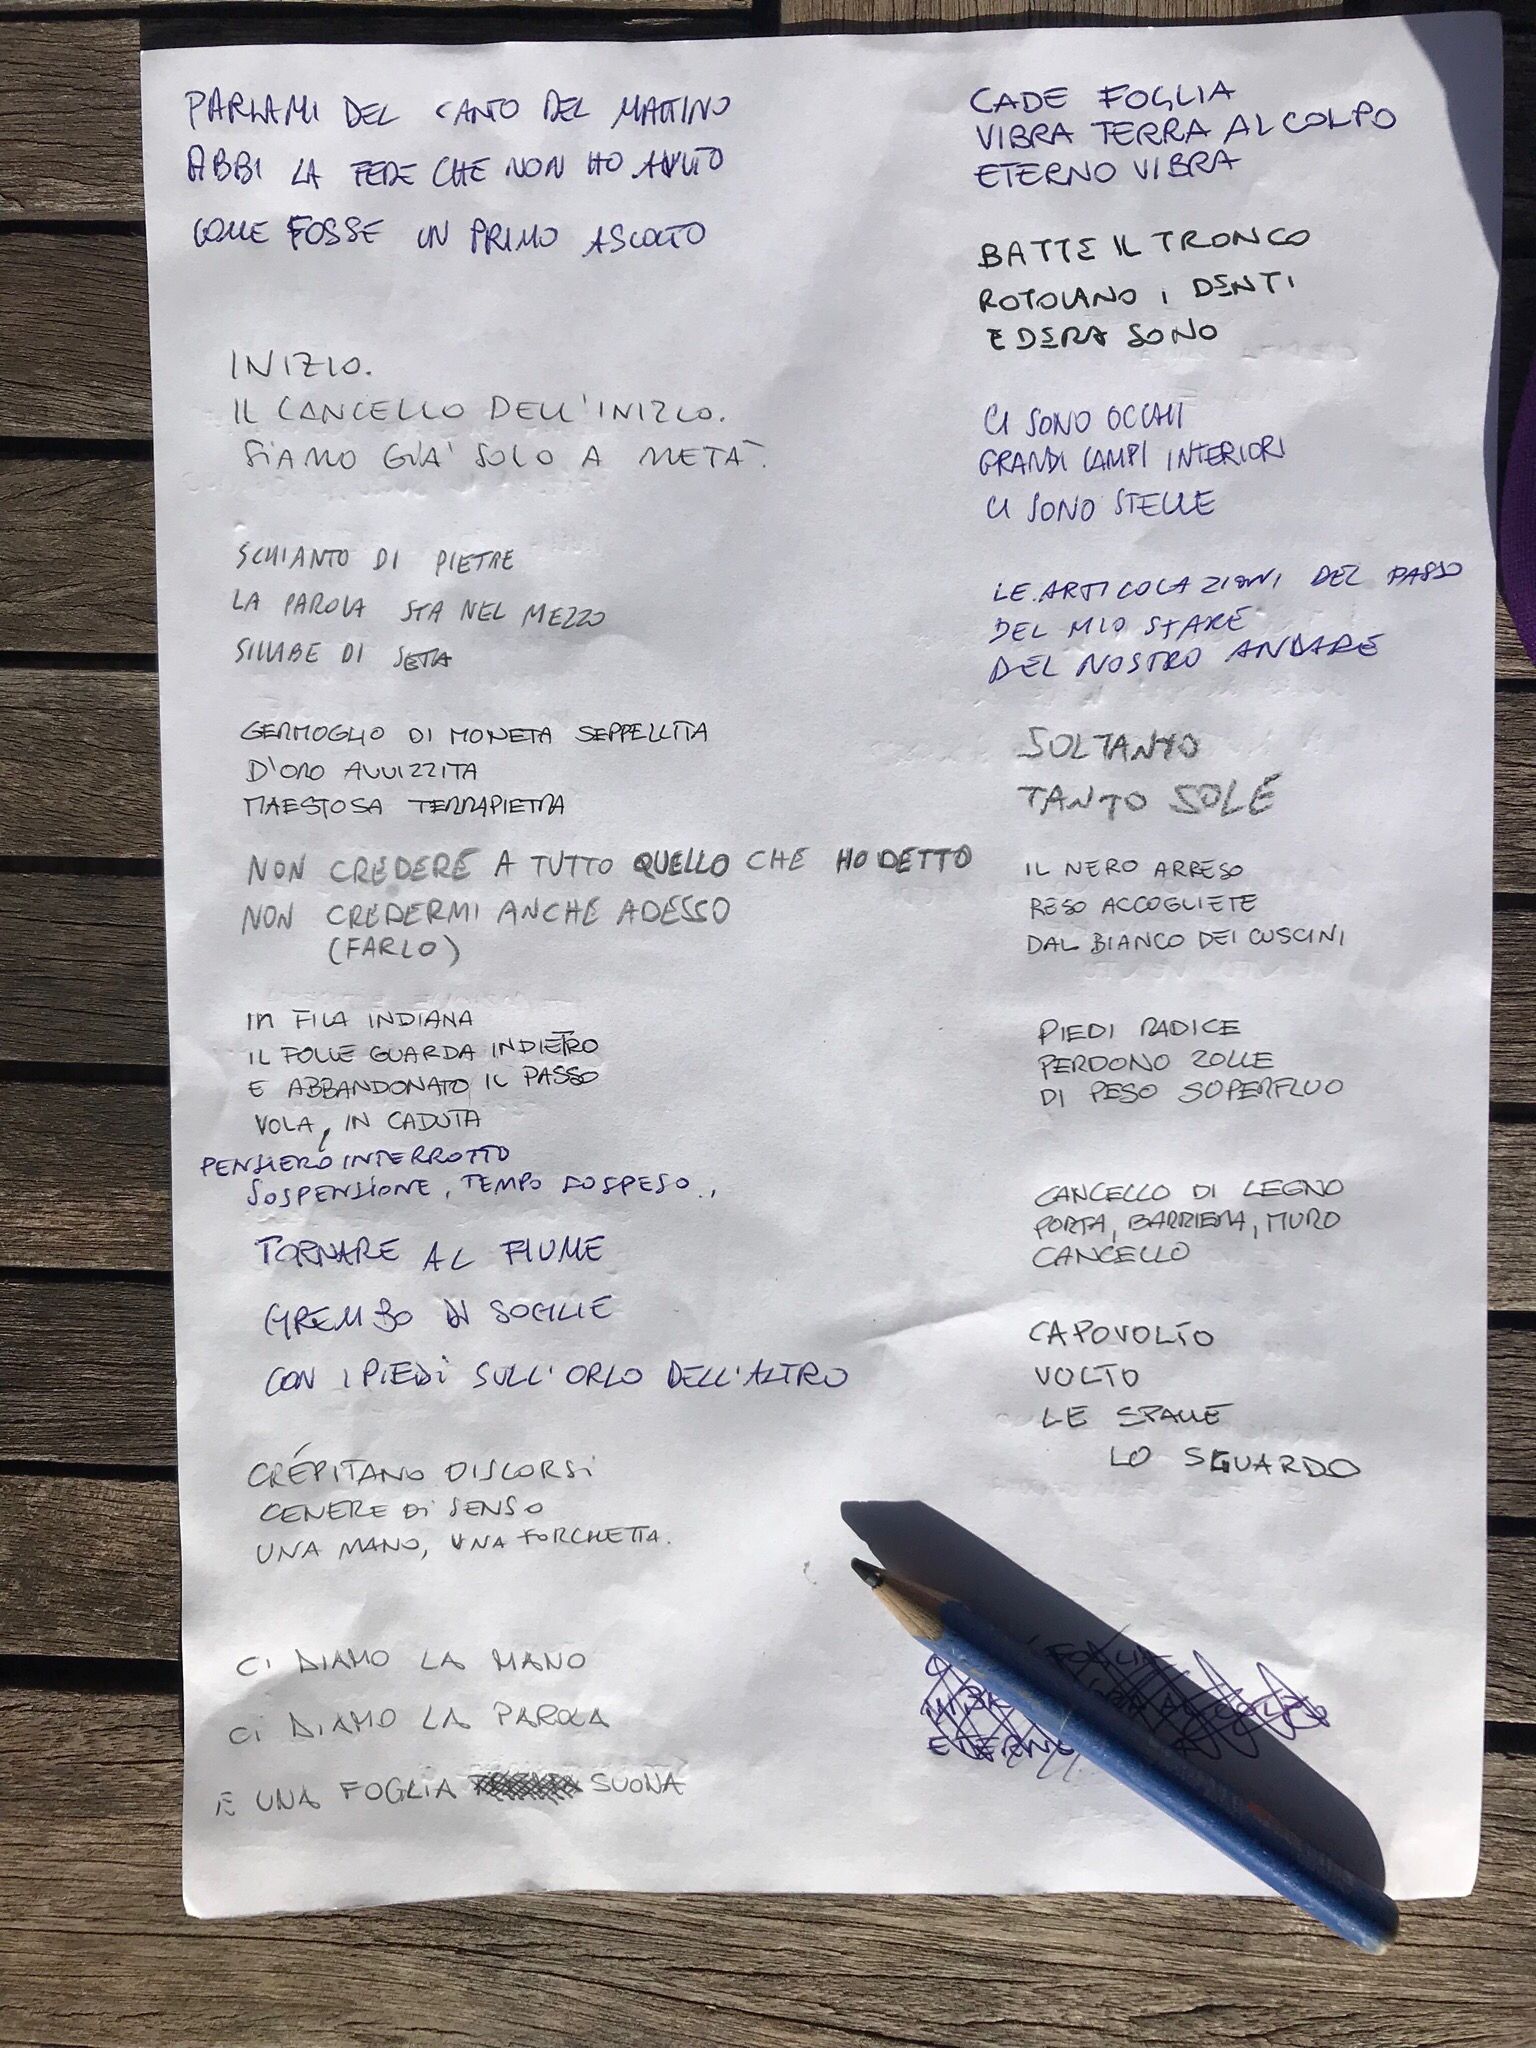 PARLAMI DEL CANTO DEL MATTINO
ABBI LA FEDE CHE NON HO AVUTO
COME FOSSE UN PRIMO ASCOLTO
INIZIO.
IL CANCELLO DELL'INIZIO.
SIAMO GIA' SOLO A METÀ.
SCHIANTO DI PIETRE
LA PAROLA STA NEL MEZZO
SILLABE DI SETA
GERMOGLIO DI MONETA SEPPELLITA
D'ORO AVVIZZITA
MAESTOSA TERRAPIETRA
NON CREDERE A TUTTO QUELLO CHE HO DETTO
NON CREDERMI ANCHE ADESSO
(FARLO)
In FILA INDIANA
IL FOLLE GUARDA INDIETRO
E ABBANDONATO IL PASSO
VOLA, IN CADUTA
PENSIERO INTERROTTO
SOSPENSIONE, TEMPO SOSPESO..,
TORNARE AL FIUME
GREMBO DI SOGLIE
CON I PIEDI SULL'ORLO DELL'ALTRO
CRÉPITANO DISCORSI
CENERE DI SENSO
UNA MANO, UNA FORCHETTA.
CI DIAMO LA MANO
CI DIAMO LA PAROLA
E UNA FOGLIA SUONA
CADE FOGLIA
VIBRA TERRA AL COLPO
ETERNO VIBRA
BATTE IL TRONCO
ROTOLANO I DENTI
EDERA SONO
CI SONO OCCHI
GRANDI CAMPI INTERIORI
CI SONO STELLE
LE ARTICOLAZIONI DEL PASSO
DEL MIO STARE
DEL NOSTRO ANDARE
SOLTANTO
TANTO SOLE
IL NERO ARRESO
RESO ACCOGLIETE
DAL BIANCO DEI CUSCINI
PIEDI RADICE
PERDONO ZOLLE
DI PESO SUPERFLUO
CANCELLO DI LEGNO
PORTA, BARRIERA, MURO
CANCELLO
CAPOVOLTO
VOLTO
LE SPALLE
LO SGUARDO